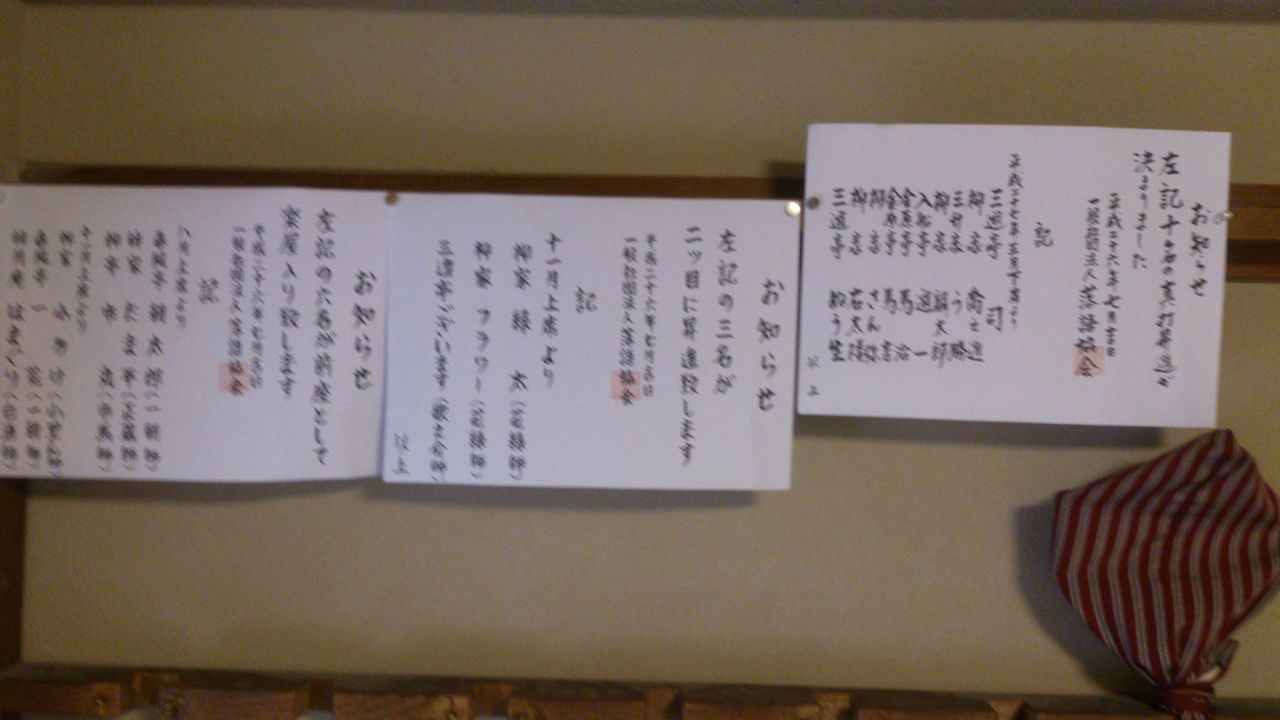 お知らせ
左記十名の真打昇進が
決まりました
平成二十六年七月吉日
一般社団法人落語協会
記
平成二十七年
三遊亭 司
柳亭
三升家 う勝
柳家 麟太郎
入船亭 遊一
金原亭 馬治
金原亭 馬吉
柳家 さん弥
柳家 右太楼
三遊亭 ぬう生
以上
お知らせ
左記の三名が
二ツ目に昇進致します
平成二十六年七月吉日
一般社団法人落語協会
記
十一月上席より
柳家 緑太(花緑師)
柳家 フラワー(花緑師)
三遊亭ございます(歌之介師)
以上
お知らせ
左記の六名が前座として
楽屋入り致します
平成二十六年七月吉日
一般社団法人落語協会
記
八月上席より
春風亭 朝太郎(一朝師)
林家 たま平(正蔵師)
柳亭 市
十一月上席より
柳家 小かけ
春風亭 一(一朝師)
はまぐり